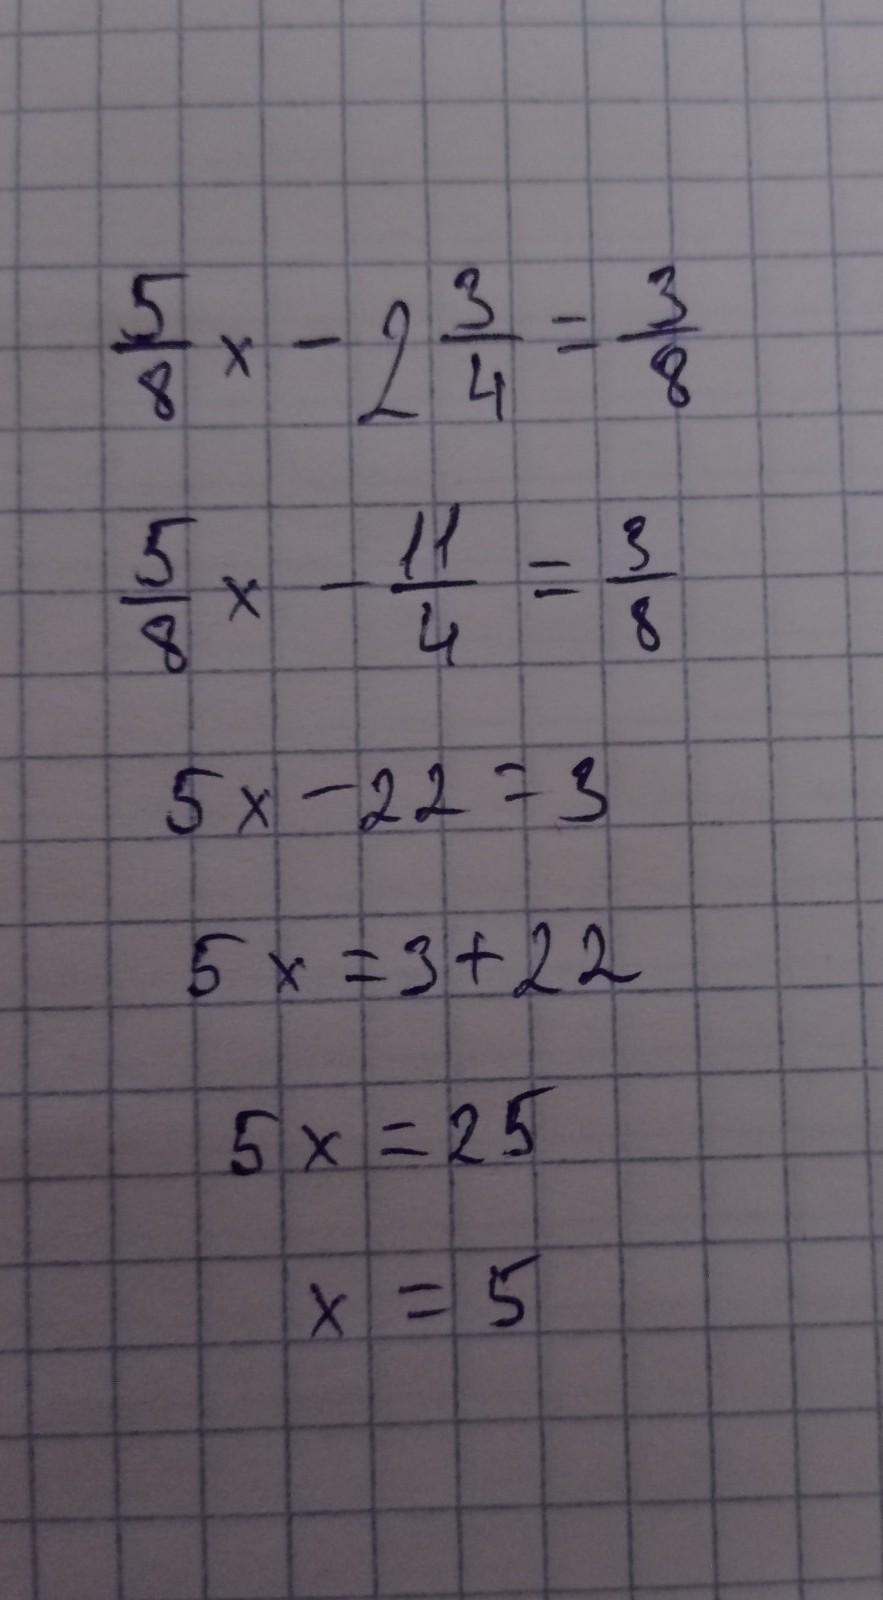 5/8 x - 2 3/4 = 3/8
5/8 x - 11/4 = 3/8
5x - 22 = 3
5x = 3 + 22
5x = 25
x = 5